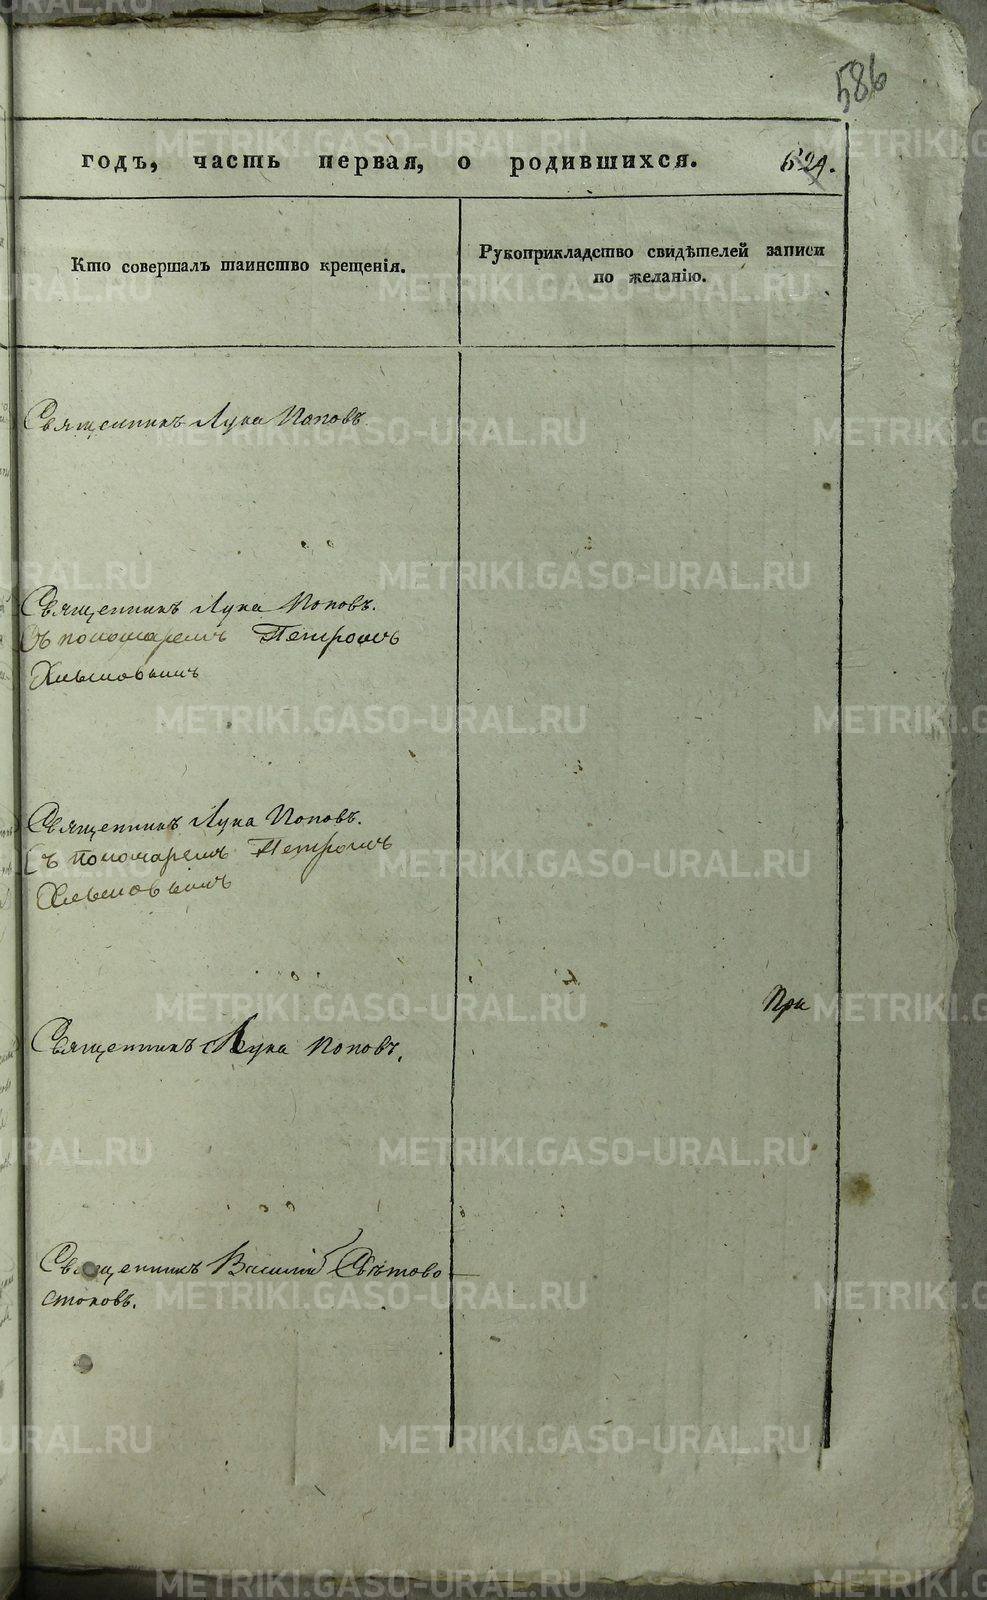 586
годъ, часть первая, о родившихся. 624.
Кто совершалъ таинство крещенія.
Рукоприкладство свидѣтелей записи
по желанію.
Священникъ Лука Поповъ.
Священникъ Лука Поповъ.
Съ пономаремъ Петромъ
Хлыновымъ
Священникъ Лука Поповъ.
Съ пономаремъ Петромъ
Хлыновымъ
При
Священникъ Лука Поповъ.
Священникъ Василій Свѣтово
стоковъ.
METRIKI.GASO-URAL.RU